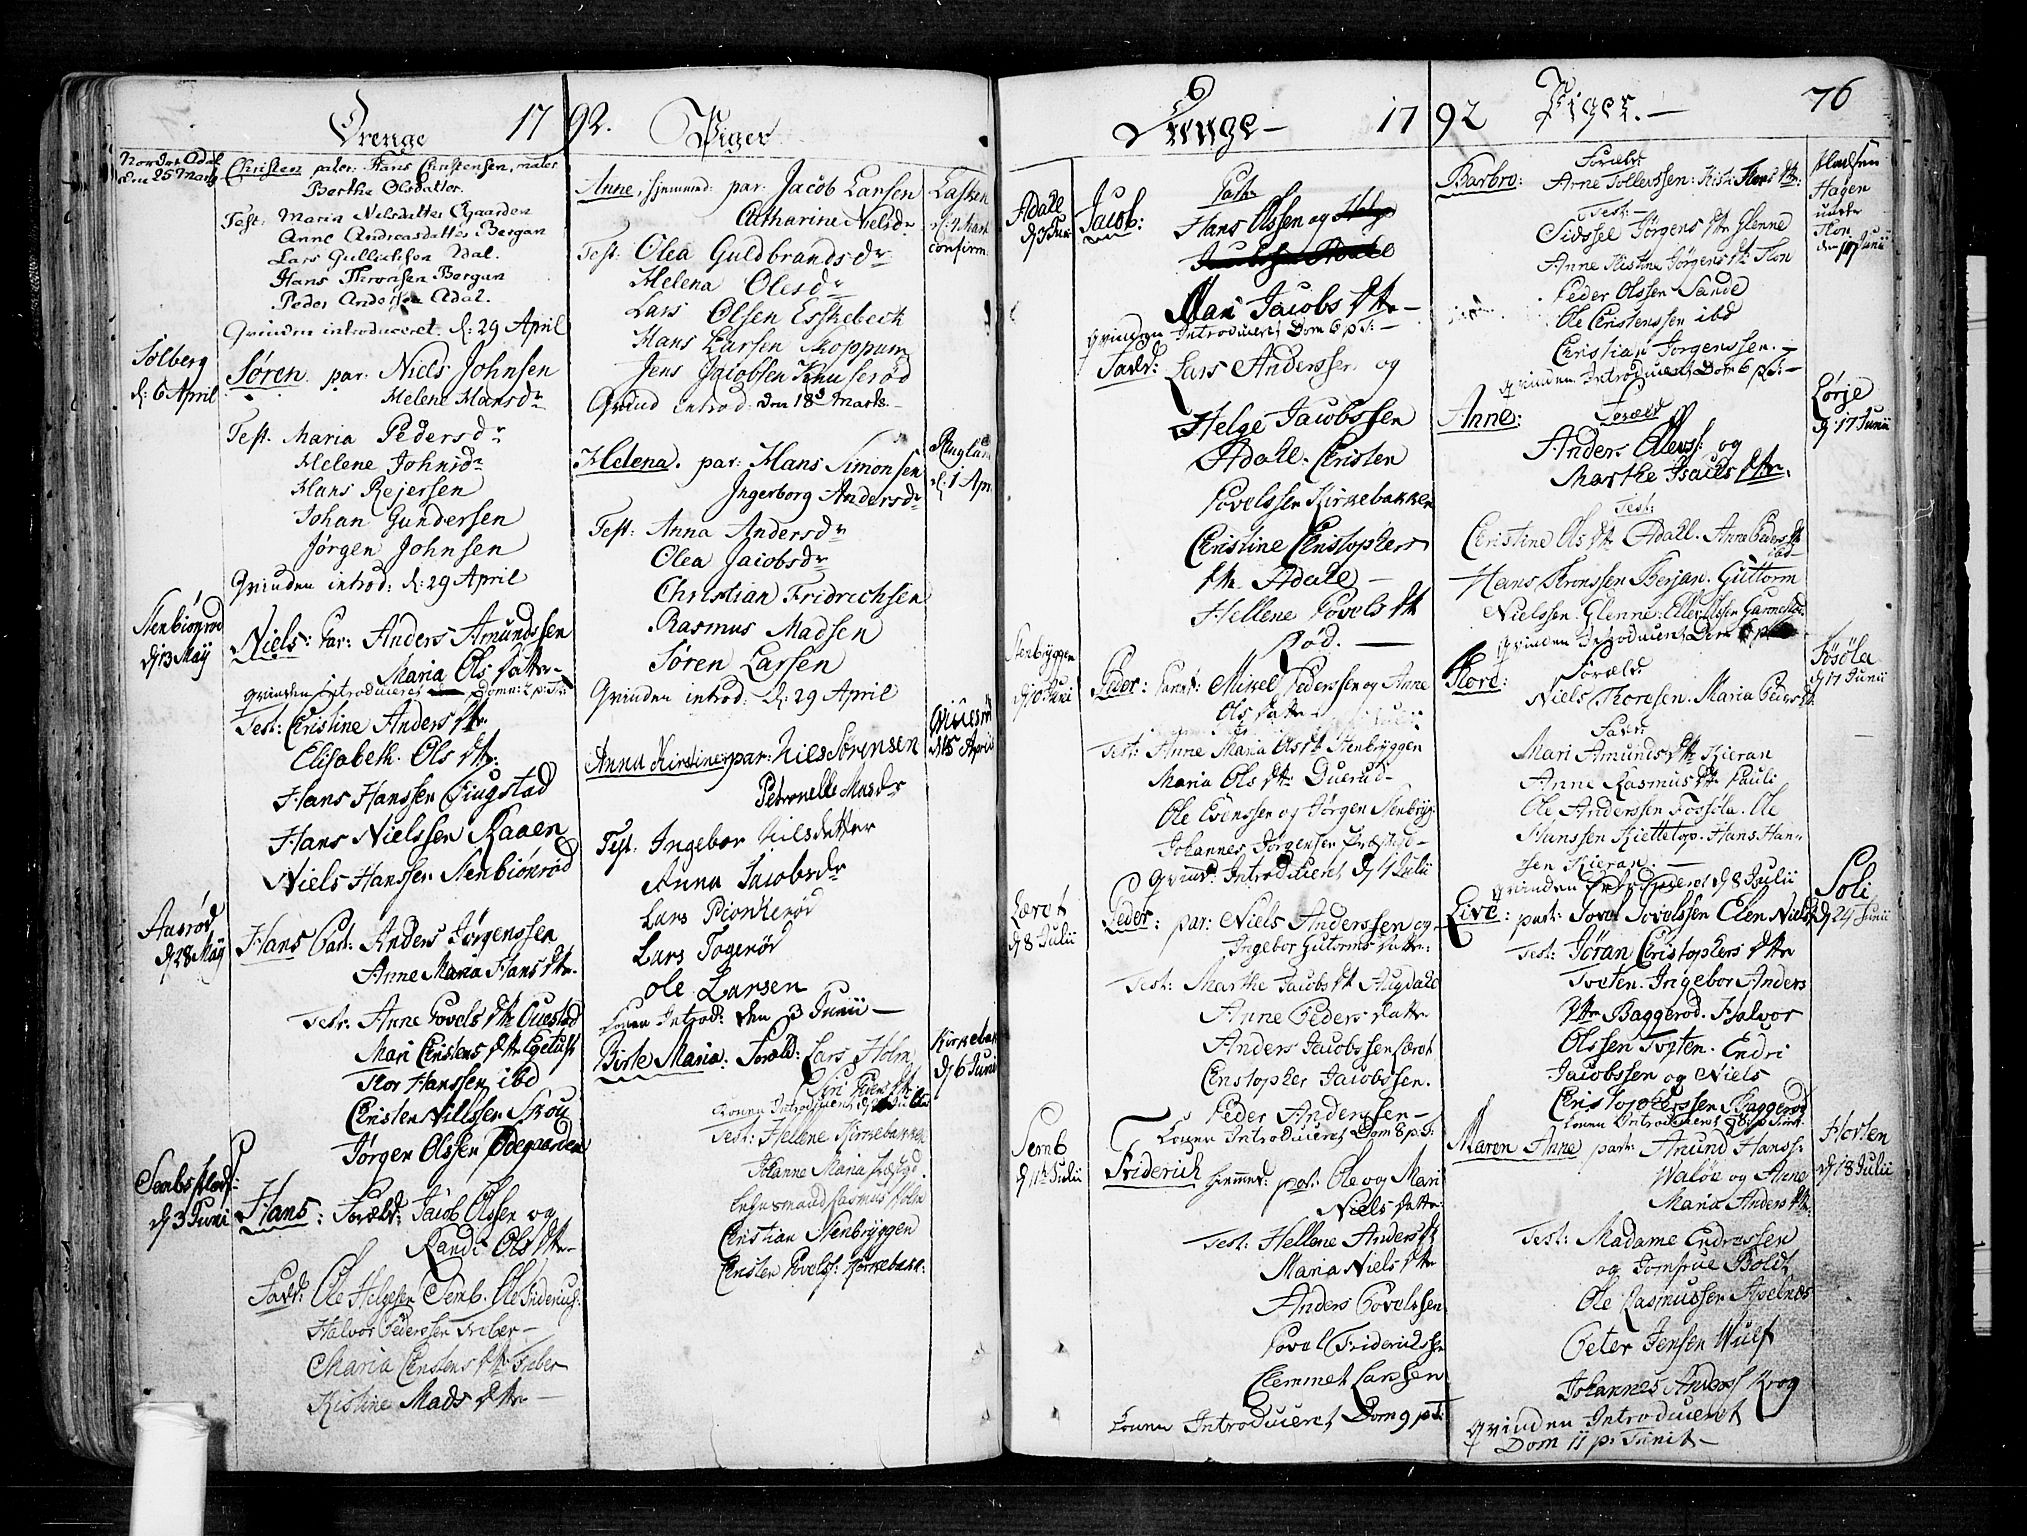 Drenge 17
92. Piger
Nordre Adal
den 25 Marty
Christen pater: Hans Christensen, mater
Berthe Olsdatter.
Test: Maria Nilsdatter Ogaarden
Anne Andreasdatter Bergan
Lars Gullichsen Adal.
Hans Thronsen Bergan
Peder Andersen Adal.
Qvinden introduceret d: 29 April
Solberg
d: 6 April
Søren par: Niels Johnsen
Helene Hansdr
Test. Maria Pedersdr
Helene Johnsdr
Hans Rejersen
Johan Gundersen
Jørgen Johnsen
Qvinden introd: d: 29 April
Stenbiönröd
d 13 Maij
Niels: Par: Anders Amundssen
Maria Ols datter
qvinden introduceret Dom: 2 p: Tr:
Test: Christine Anders dtr
Elisabeth Ols dtr:
Hans Hanssen
Hans Nielssen Raaen
Niels Hanssen Stenbiönröd
Aasröd
d 28 Maij
Hans Par: Anders Jørgenssen
Anne Maria Hans dtr.
Test: Anne Povels dtr
Mari Christens dtr
Thor Hanssen ibd
Christen Nillssen Skou
Jørgen Olssen Ødegaarden
d 3 Juni
Hans: Foræld: Jacob Olssen og
Randi Ols dtr
Fadd: Ole Helgesen Semb. Ole Friderichs:
Halvor Pederssen Freber
Maria Christens dtr Freber
Kistine Mads dtr
Anne, hjemmed: par: Jacob Larsen
Catharine Nielsdr
Test: Olea Guldbrandsdr
Helena Olesdr
Lars Olsen Esskebeck
Hans Larsen Skoppum
Jens Jacobsen Knuserød
Qvind introd: den 18d Marts.
confirm
Helena. par: Hans Simonsen
Ingerborg Andersdr
Test: Anna Andersdr
Olea Jacobsdr
Christian Fridrichsen
Rasmus Madsen
Søren Larsen
Qvinden introd: d: 29 April
d: 1 Apr
Anna Kirstine par: Niels Sørensen
Petronelle Masdr
d 15 April
Test. Ingebor Nilsdatter
Anna Jacobsdr
Lars
Lars
Ole Larsen
Konen Introd: den 3 Junii
Birte Maria: Foræld: Lars Holm
Siri Peders dtr
Kirkebak
d 6 Juni
Test: Hellene Kirkebakken
Johanne Maria
Rasmus Holm
Christian Stenbryggen
Christen Povels: Kirkebakk:
Drenge 17
92 Piger. 76
Adall
d 3 Juni
Jacob:
Patr:
Hans Olssen og
Mari Jacobs dtr
qvinden Introduceret Dom 6 p: T:
Fadd: Lars Anderssen og
Helge Jacobssen
Adall. Christen
Povelssen Kirkebakken
Christine Christophers
dtr. Adall
Hellene Povels dtr
Röd.
Stenbryggen
d 10 Juni
Peder: Mikel Pederssen og Anne
Ols datter
Test: Anne Maria Ols dtr Stenbryggen
Maria Ols dtr
Ole Evenssen og Jørgen Stenbryg:
Johannes Jørgensen
Qvind: Introduceret d 4 Julii
d 8 Julii
Peder: par: Niels Anderssen og
Ingebor Gutorms datter:
Test: Marthe Jacobs dtr Augdale
Anne Peders datter
Anders Jacobssen
Christopher Jacobssen.
Peder Anderssen
Konen Introduceret Dom 8 p: T:
Semb
d 11te Julii
Friderich hiemmed: par: Ole og Mari
Niels datter:
Test: Hellene Anders dtr
Maria Niels dtr
Anders Povelssen
Povel Fridrichssen
Clemmet Larssen
Konen Introduceret Dom 9 p T:
Barbro:
Foræld:
Arne Tollerssen: Kisti Thors dtr:
Test:
Sidssel Jørgens dtr Glenne
Anne Kistine Jørgens dtr Flon
Peder Olssen Sande
Ole Christenssen ibd
Christian Jørgenssen.
qvinden Introduceret Dom 6 p: T:
Pladsen
Hagen
under
Flon
den 10 Junii
Anne:
Foræld
Anders Ellevs: og
Marthe Isaacs dtr:
Test:
Christine Ols dtr Adall. Anne Peders dtr
ibd
Hans Thronssen Berjan. Guttorm
Nielssen. Glenne:
Lørje
d 17 Junii
Thore:
Foræld:
Niels Thoresen. Maria Peders dt
Fadr:
Mari Amunds dtr Kieran
Anne Rasmus dtr Pauli
Ole Anderssen Fossola. Ole
Hanssen Kiettetop. Hans Han-
sen Kieran.
qvinden Introduceret d 8 Julii
d 17 Junii
Live: par: Povel Povelssen Elen Niels dt
Soli
d 24 Junii
Test: Jøran Christophers dtr
Tveten. Ingebor Anders
dtr Baggeröd. Halvor
Olssen Tveten. Endri
Jacobssen og Niels
Christopherssen Baggeröd
Maren Anne par: Amund Hanss:
Waløe og Anne
Maria Anders dtr:
Horten
d 8 Julii
Test: Madame Endressen
og Jomfrue Boldt
Ole Rasmussen Apelnæs
Peter Jensen Wulf
Johannes Anders: Krog
qvinden Introduceret
Dom 11 p: Trinit